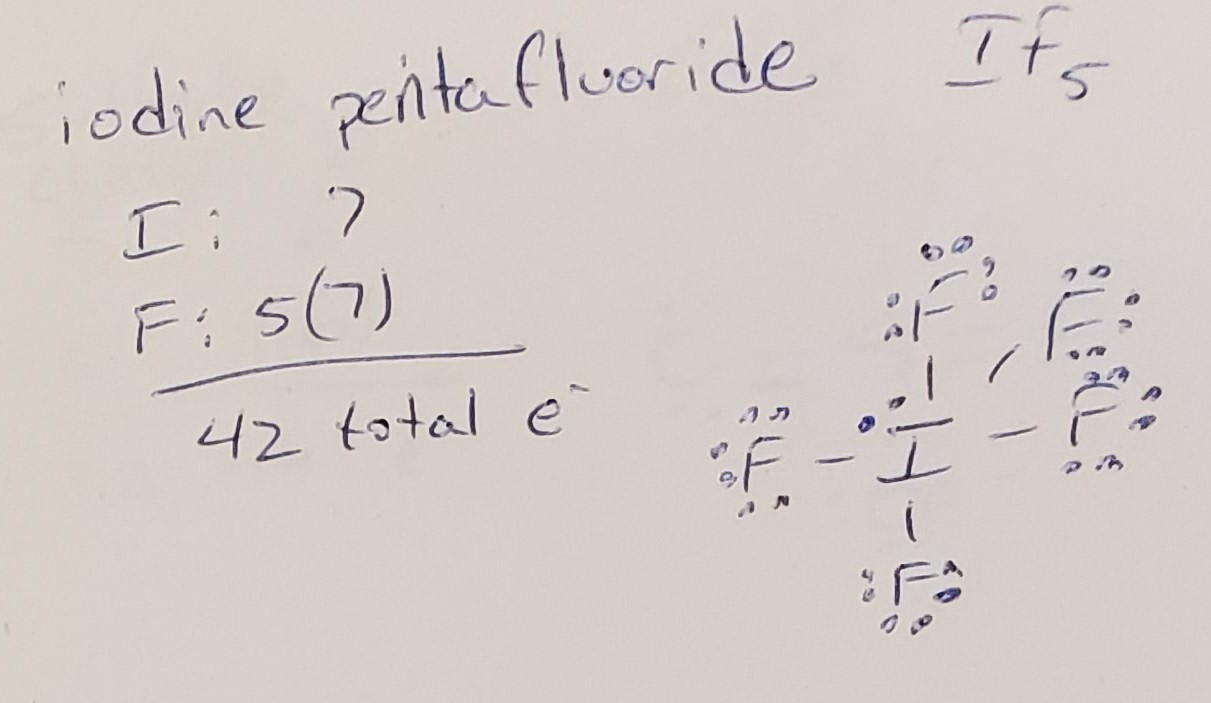 iodine pentafluoride If₅
I: 7
F: 5(7)
42 total e⁻
:F: F:
:F - :I - F:
:F: